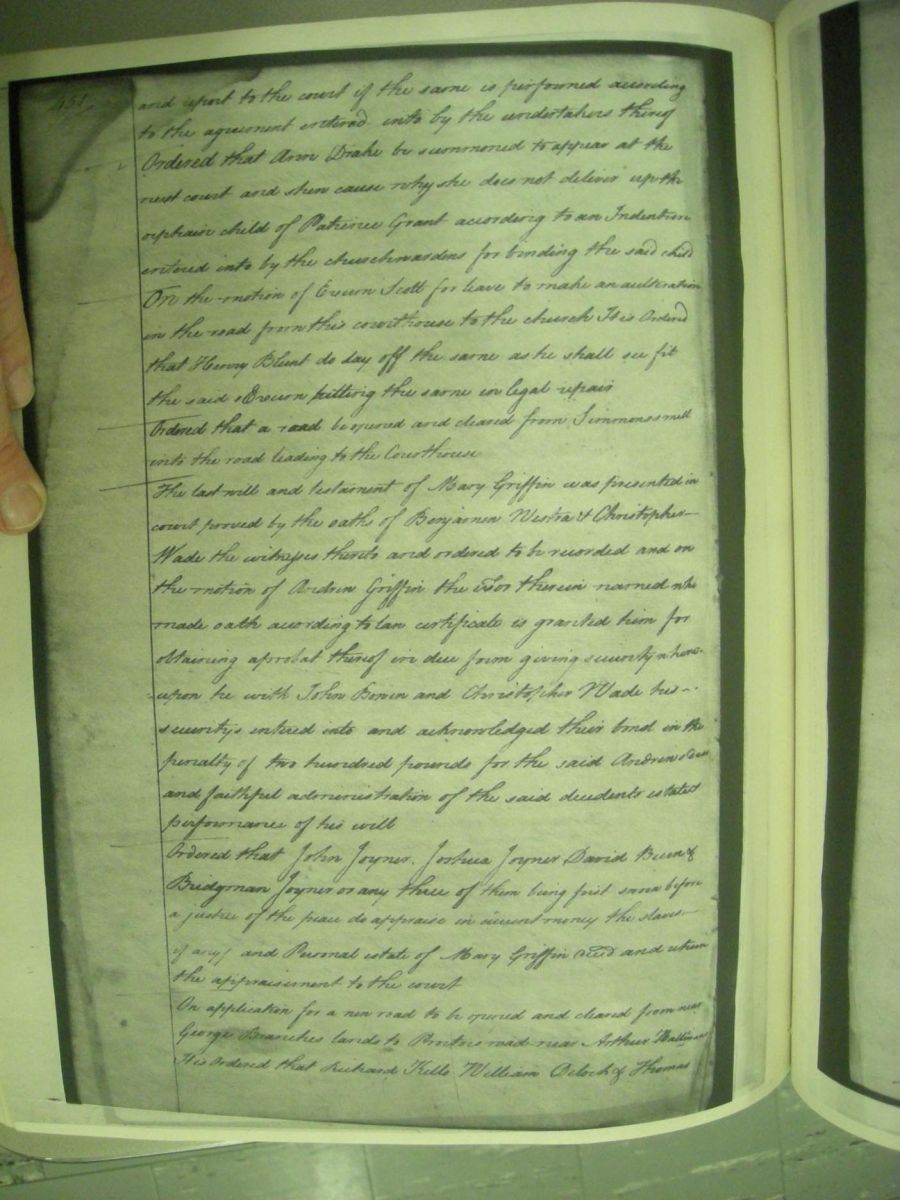 451
and report to the court if the same is performed according
to the agreement entered into by the undertakers thereof
Ordered that Ann Drake be summoned to appear at the
next court and shew cause why she does not deliver up the
orphain child of Patience Grant according to an Indenture
entered into by the churchwardens for binding the said child
On the motion of Exum Scott for leave to make an alteration
in the road from this courthouse to the church It is Ordered
that Henry Blunt do lay off the same as he shall see fit
the said Exum putting the same in legal repair
Ordered that a road be opened and cleared from Simmons's mill
into the road leading to the Courthouse
The last will and testament of Mary Griffin was presented in
court proved by the oaths of Benjamin Westra & Christopher
Wade the witnesses thereto and ordered to be recorded and on
the motion of Andrew Griffin the exor therein named who
made oath according to law certificate is granted him for
obtaining a probat thereof in due form giving security where-
upon he with John Bowin and Christopher Wade his
securitys entered into and acknowledged their bond in the
penalty of two hundred pounds for the said Andrew's due
and faithful administration of the said decedents estate &
performance of his will
Ordered that John Joyner, Joshua Joyner David &
Bridgman Joyner or any three of them being first sworn before
a justice of the peace do appraise in current money the slaves
if any) and Personal estate of Mary Griffin decd and return
the appraisement to the court
On application for a new road to be opened and cleared from near
George Branches lands to Proctors road near Arthur
It is Ordered that Richard Kello William & Thomas